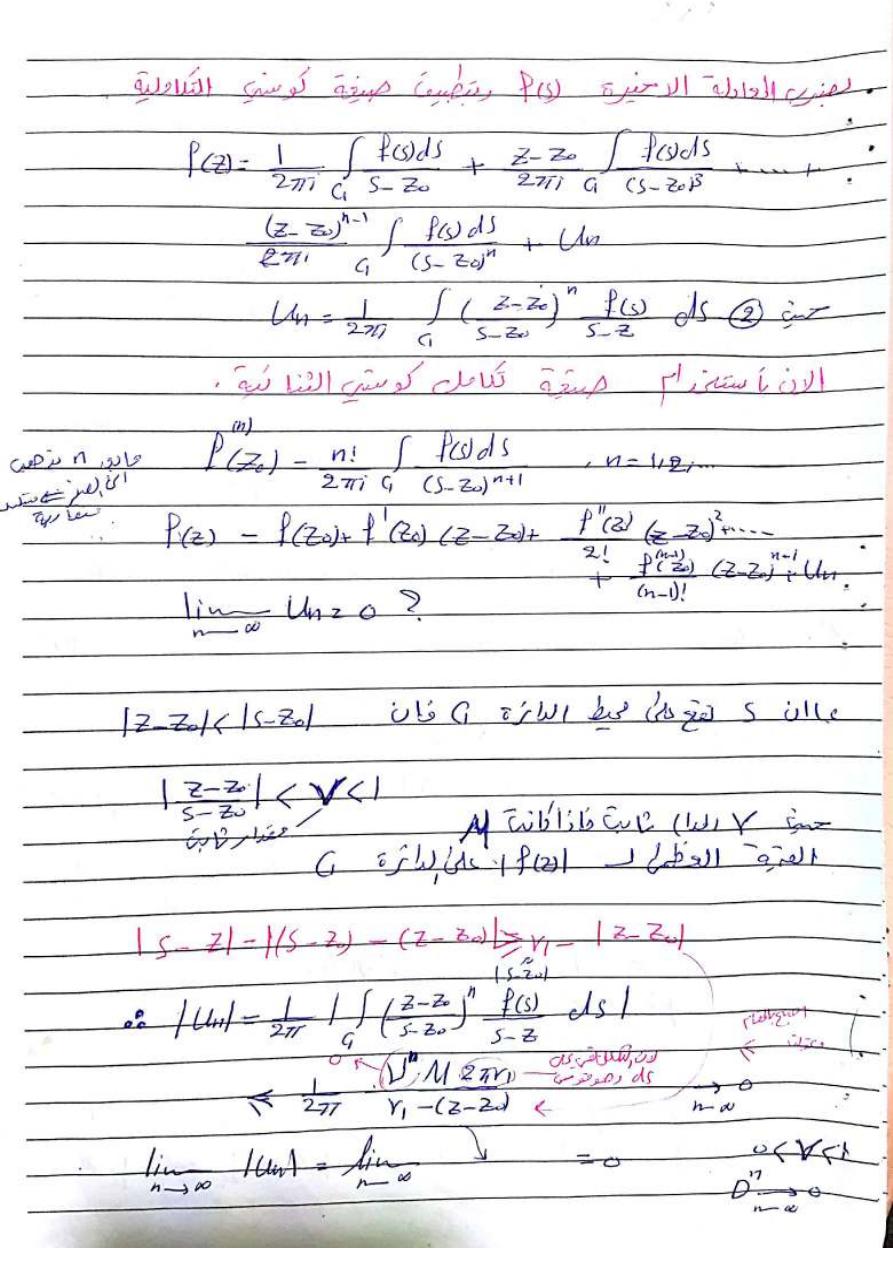 بضرب المعادلة الاخيرة f(s) وبتطبيق صيغة كوشي التكاملية
f(z) = 1/2πi ∫_{C₁} f(s)ds/(s-z₀) + (z-z₀)/2πi ∫_{C₁} f(s)ds/(s-z₀)² + .... +
(z-z₀)^{n-1}/2πi ∫_{C₁} f(s)ds/(s-z₀)^n + Un
حيث ② Un = 1/2πi ∫_{C₁} ((z-z₀)/(s-z₀))^n f(s)/(s-z) ds
الان بأستخدام صيغة تكامل كوشي الثنائية.
f^{(n)}(z₀) = n!/2πi ∫_{C₁} f(s)ds/(s-z₀)^{n+1} , n=1,2,...
n تذهب
f(z) = f(z₀) + f'(z₀)(z-z₀) + f''(z₀)/2! (z-z₀)² + .....
+ f^{(n-1)}(z₀)/(n-1)! (z-z₀)^{n-1} + Un
lim_{n→∞} Un = 0 ?
بما ان s تقع على محيط الدائرة C₁ فان |z-z₀| < |s-z₀|
|(z-z₀)/(s-z₀)| < V < 1
مقدار ثابت
حيث V ثابت فاذا كانت M
القيمة العظمى لـ |f(z)| على الدائرة C₁
|s-z| = |(s-z₀) - (z-z₀)| ≥ r₁ - |z-z₀|
|s-z₀|
∴ |Un| = 1/2π |∫_{C₁} ((z-z₀)/(s-z₀))^n f(s)/(s-z) ds|
≤ 1/2π V^n M 2πr₁/(r₁-(z-z₀)) →_{n→∞} 0
lim_{n→∞} |Un| = lim_{n→∞} = 0 0<V<1
V^n →_{n→∞} 0